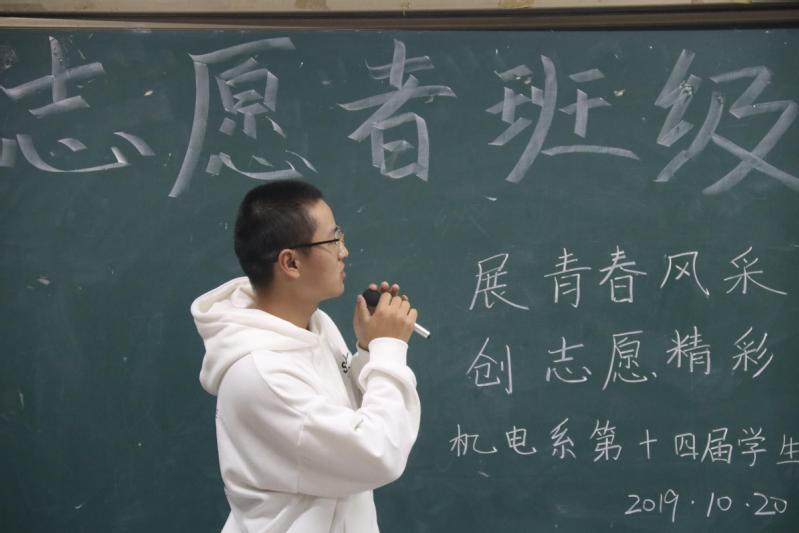 志愿者班级
展青春风采
创志愿精彩
机电系第十四届学生
2019.10.20